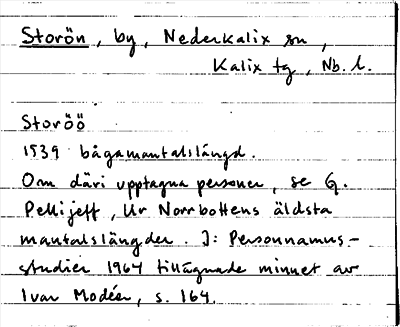 Storön, by, Nederkalix sn,
Kalix tg, Nb. l.
Storöö
1539 bågamantalslängd.
Om däri upptagna personer, se G.
Pellijeff, Ur Norrbottens äldsta
mantalslängder. I: Personnamns-
studier 1964 tillägnade minnet av
Ivar Modéer, s. 164.